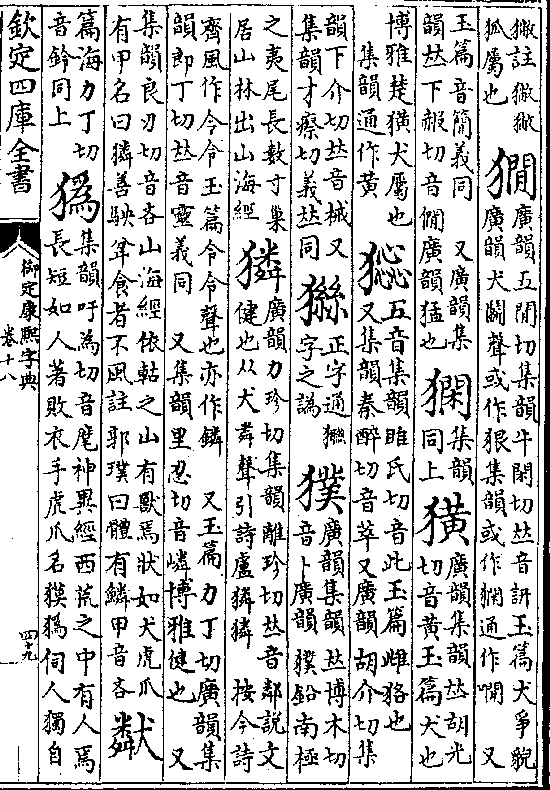 獥註獥
狐屬也
廣韻五閒切集韻牛閑切𠀤音訮玉篇犬爭貌
廣韻犬鬭聲或作狠集韻或作通作 又
玉篇音簡義同 又廣韻集
韻𠀤下赧切音僩廣韻猛也
集韻
同上
獚
廣韻集韻𠀤胡光
切音黃玉篇犬也
博雅楚獚犬屬也
集韻通作黄
五音集韻雎氏切音此玉篇雌狢也
又集韻秦醉切音萃又廣韻胡介切集
韻下介切𠀤音械又
集韻才瘵切義𠀤同
正字通
字之譌
獛
廣韻集韻𠀤博木切
音卜廣韻獛鉛南極
之夷尾長數寸巢
居山林出山海經
獜
廣韻力珍切集韻離珍切𠀤音鄰說文
健也从犬粦聲引詩盧獜獜 按今詩
齊風作令令玉篇令令聲也亦作鏻 又玉篇力丁切廣韻集
韻郎丁切𠀤音靈義同 又集韻里忍切音嶙博雅健也 又
集韻良刃切音吝山海經依軲之山有獸焉狀如犬虎爪
有甲名曰獜善駚坌食者不風註郭璞曰體有鱗甲音吝
篇海力丁切
音鈴同上
㺔
集韻吁爲切音麾神異經西荒之中有人焉
長短如人著敗衣手虎爪名獏㺔伺人獨自
欽定四庫全書
御定康熙字典
卷十八
四十九